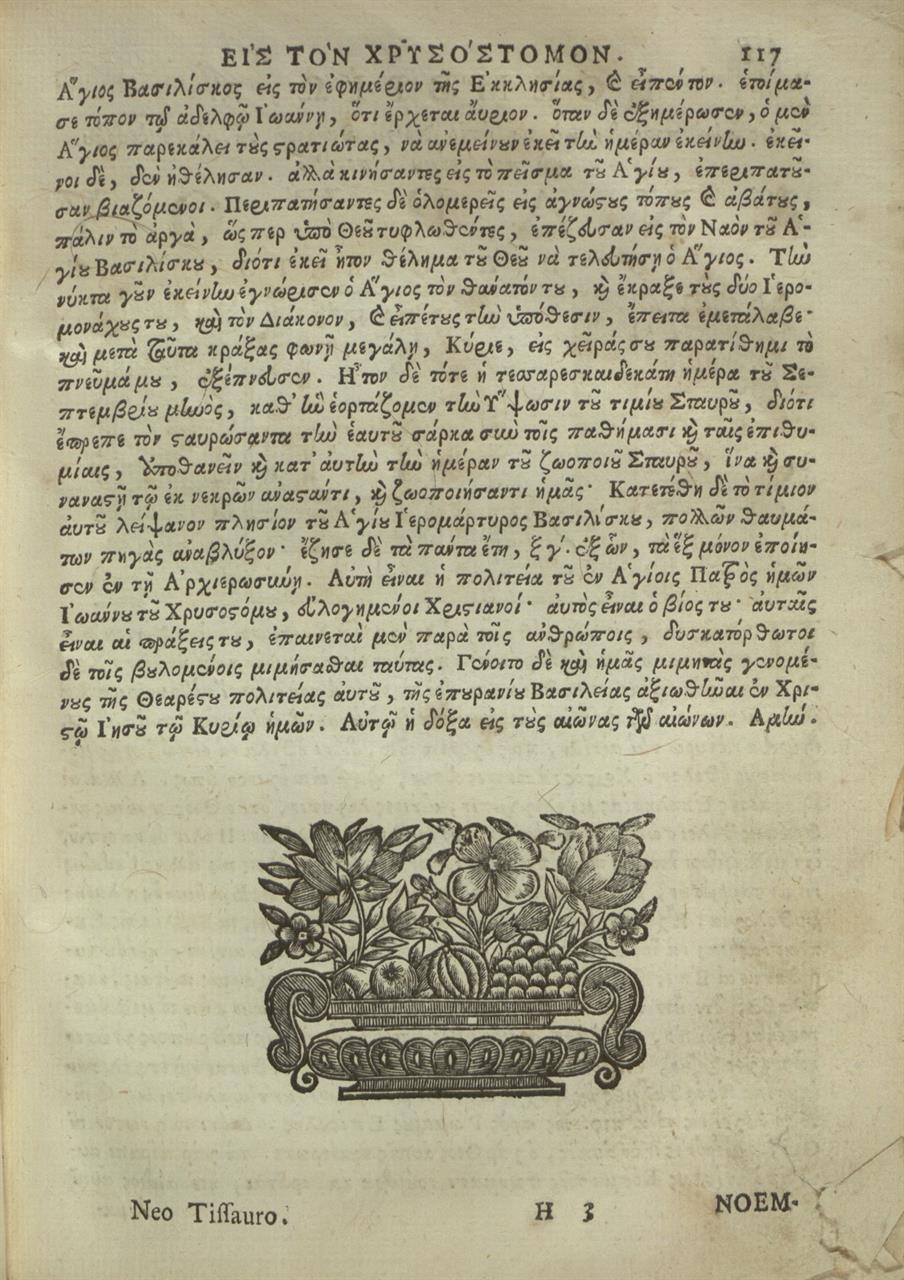 ΕΙΣ ΤΟΝ ΧΡΥΣΟΣΤΟΜΟΝ. 117
Ἅγιος Βασιλίσκος εἰς τὸν ἐφημέριον τῆς Ἐκκλησίας, καὶ εἶπέν τον. ἑτοίμα-
σε τόπον τῷ ἀδελφῷ Ἰωάννῃ, ὅτι ἔρχεται ἄυριον. ὅταν δὲ ἐξημέρωσεν, ὁ μὲν
Ἅγιος παρεκάλει τοὺς στρατιώτας, νὰ ἀνεμείνουν ἐκεῖ τὴν ἡμέραν ἐκείνην. ἐκεῖ-
νοι δὲ, δὲν ἠθέλησαν. ἀλλὰ κινήσαντες εἰς τὸ πεῖσμα τοῦ Ἁγίου, ἐπερπατοῦ-
σαν βιαζόμενοι. Περπατήσαντες δὲ ὁλομερεῖς εἰς ἀγνώστους τόπους καὶ ἀβάτους,
πάλιν τὸ ἀργὰ, ὥς περ ὑπὸ Θεοῦ τυφλωθέντες, ἐπέζευσαν εἰς τὸν Ναὸν τοῦ Ἁ-
γίου Βασιλίσκου, διότι ἐκεῖ ἦτον θέλημα τοῦ Θεοῦ νὰ τελευτήσῃ ὁ Ἅγιος. Τὴν
νύκτα γοῦν ἐκείνην ἐγνώρισεν ὁ Ἅγιος τὸν θάνατόν του, καὶ ἔκραξε τοὺς δύο Ἱερο-
μονάχους του, καὶ τὸν Διάκονον, καὶ εἶπέ τους τὴν ὑπόθεσιν, ἔπειτα ἐμετάλαβε·
καὶ μετὰ ταῦτα κράξας φωνῇ μεγάλῃ, Κύριε, εἰς χεῖράς σου παρατίθημι τὸ
πνεῦμά μου, ἐξέπνευσεν. Ἦτον δὲ τότε ἡ τεσσαρεσκαιδεκάτη ἡμέρα τοῦ Σε-
πτεμβρίου μηνὸς, καθ' ἣν ἑορτάζομεν τὴν Ὕψωσιν τοῦ τιμίου Σταυροῦ, διότι
ἔπρεπε τὸν σταυρώσαντα τὴν ἑαυτοῦ σάρκα σὺν τοῖς παθήμασι καὶ ταῖς ἐπιθυ-
μίαις, ἀποθανεῖν καὶ κατ' ἀυτὴν τὴν ἡμέραν τοῦ ζωοποιοῦ Σταυροῦ, ἵνα καὶ συ-
ναναστῇ τῷ ἐκ νεκρῶν ἀναστάντι, καὶ ζωοποιήσαντι ἡμᾶς· Κατετέθη δὲ τὸ τίμιον
ἀυτοῦ λείψανον πλησίον τοῦ Ἁγίου Ἱερομάρτυρος Βασιλίσκου, πολλῶν θαυμά-
των πηγὰς ἀναβλύξον· ἔζησε δὲ τὰ πάντα ἔτη, ξγ΄. ἐξ ὧν, τὰ ἓξ μόνον ἐποίη-
σεν ἐν τῇ Ἀρχιερωσύνῃ. Αὐτὴ εἶναι ἡ πολιτεία τοῦ ἐν Ἁγίοις Πατρὸς ἡμῶν
Ἰωάννου τοῦ Χρυσοστόμου, εὐλογημένοι Χριστιανοί· ἀυτὸς εἶναι ὁ βίος του· ἀυταῖς
εἶναι αἱ πράξεις του, ἐπαινεταὶ μὲν παρὰ τοῖς ἀνθρώποις, δυσκατόρθωτοι
δὲ τοῖς βουλομένοις μιμήσαθαι ταύτας. Γένοιτο δὲ καὶ ἡμᾶς μιμητὰς γενομέ-
νους τῆς Θεαρέστου πολιτείας ἀυτοῦ, τῆς ἐπουρανίου Βασιλείας ἀξιωθῆναι ἐν Χρι-
στῷ Ἰησοῦ τῷ Κυρίῳ ἡμῶν. Αὐτῷ ἡ δόξα εἰς τοὺς αἰῶνας τῶν αἰώνων. Ἀμήν.
Neo Tissauro. H 3 ΝΟΕΜ-